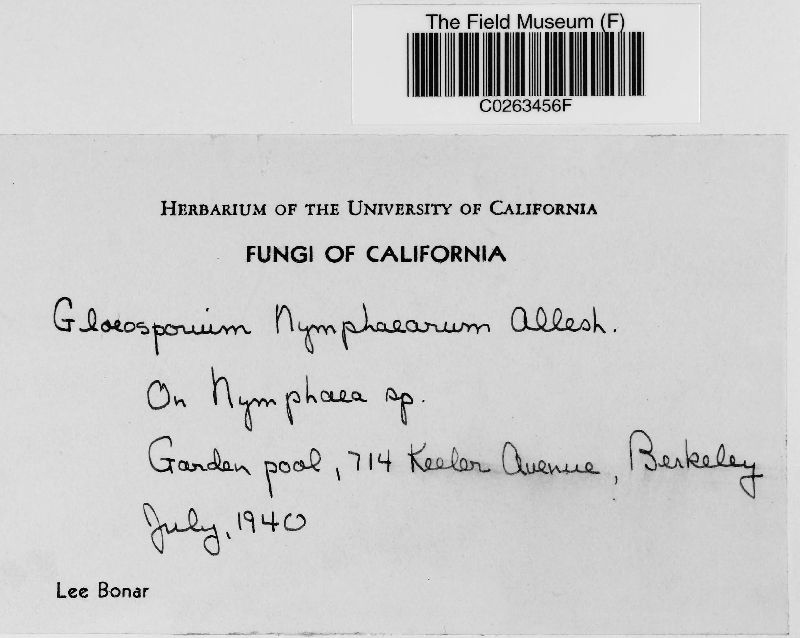 The Field Museum (F)
C0263456F
HERBARIUM OF THE UNIVERSITY OF CALIFORNIA
FUNGI OF CALIFORNIA
Gloeosporium Nymphaearum Allesh.
On Nymphaea sp.
Garden pool, 714 Keeler Avenue, Berkeley
July, 1940
Lee Bonar